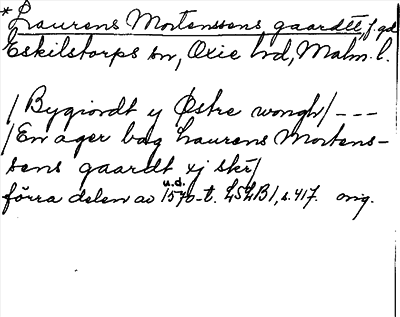 *Laurens Mortenssens gaardtt, f. gd
Eskilstorps sn, Oxie hd, Malm. l.
/Bygiordt y Østre wongh/ - - -
/En ager bag Laurens Mortens-
sens gaardt xj skr/
u.d.
förra delen av 1570-t. LSLB1, s. 417. orig.